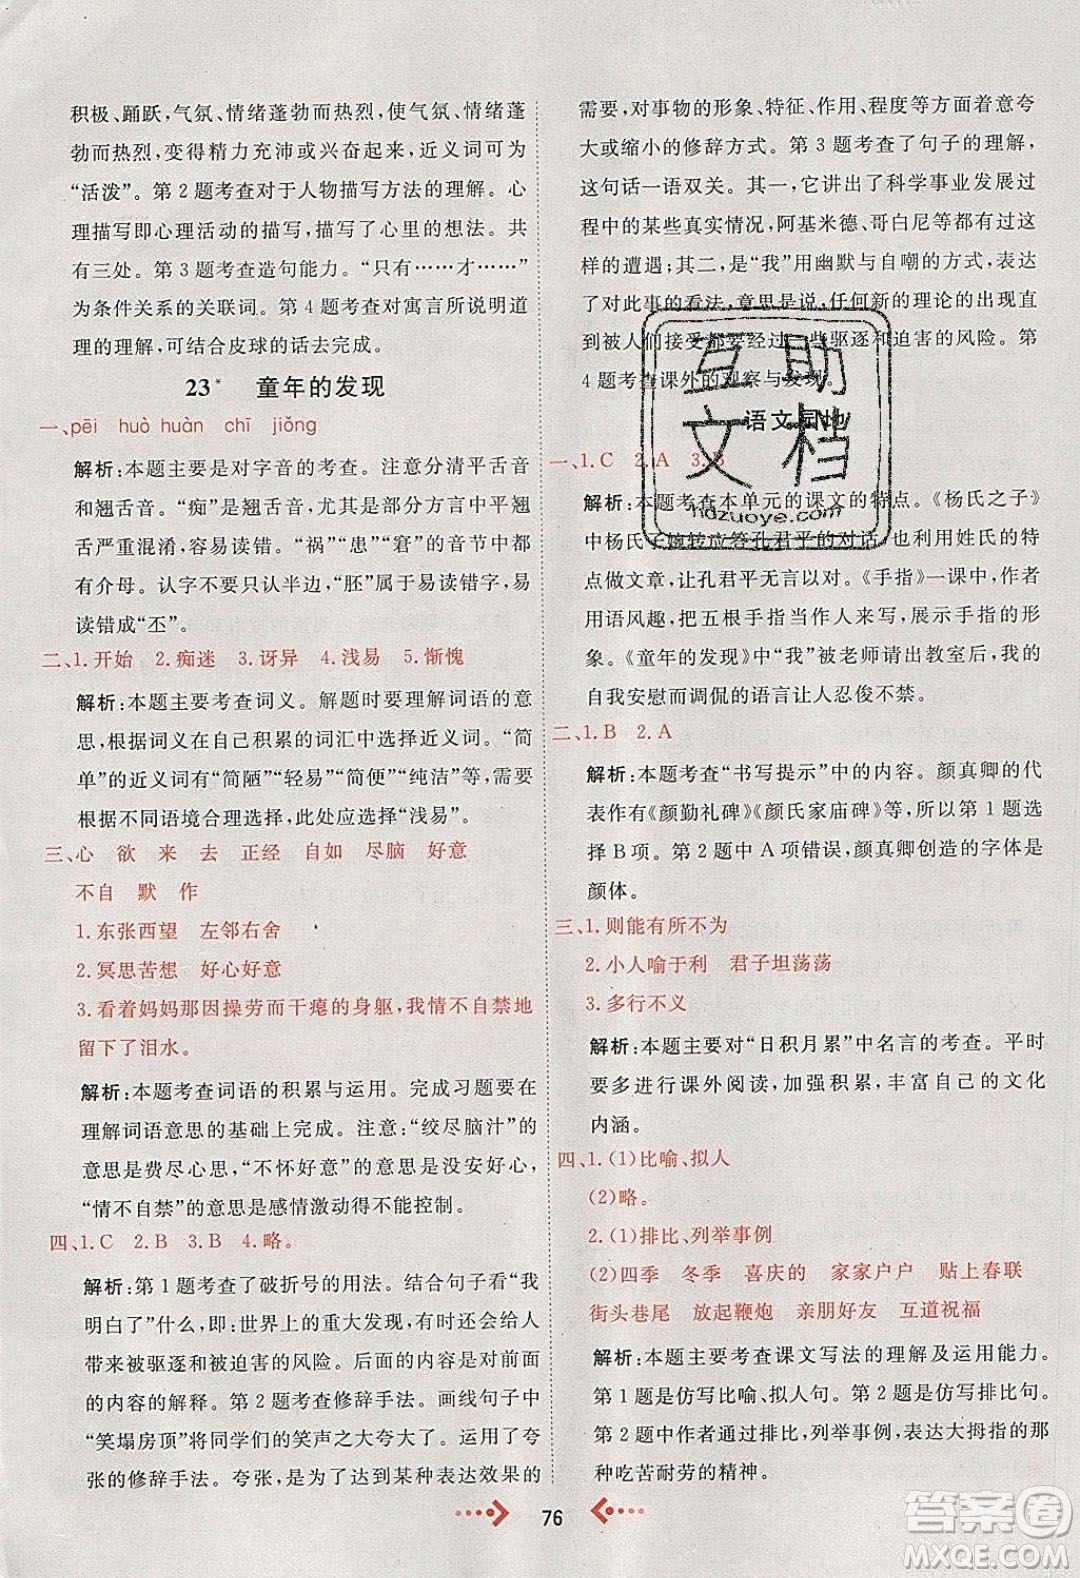 积极、踊跃,气氛、情绪蓬勃而热烈,使气氛、情绪蓬
勃而热烈,变得精力充沛或兴奋起来,近义词可为
“活泼”。第2题考查对于人物描写方法的理解。心
理描写即心理活动的描写,描写了心里的想法。共
有三处。第3题考查造句能力。“只有……才……”
为条件关系的关联词。第4题考查对寓言所说明道
理的理解,可结合皮球的话去完成。
23* 童年的发现
一、pēi huò huàn chī jiǒng
解析:本题主要是对字音的考查。注意分清平舌音
和翘舌音。“痴”是翘舌音,尤其是部分方言中平、翘
舌严重混淆,容易读错。“祸”“患”“窘”的音节中都
有介母。认字不可只认半边,“胚”属于易读错字,易
读错成“丕”。
二、1.开始 2.痴迷 3.讶异 4.浅易 5.惭愧
解析:本题主要考查词义。解题时要理解词语的意
思,根据词义在自己积累的词汇中选择近义词。“简
单”的近义词有“简陋”“轻易”“简便”“纯洁”等,需
根据不同语境合理选择,此处应选择“浅易”。
三、心 欲 来 去 正经 自如 尽脑 好意
不自 默 作
1.东张西望 左邻右舍
2.冥思苦想 好心好意
3.看着妈妈那因操劳而干瘪的身躯,我情不自禁地
留下了泪水。
解析:本题考查词语的积累与运用。完成习题要在
理解词语意思的基础上完成。注意:“绞尽脑汁”的
意思是费尽心思,“不怀好意”的意思是没安好心,
“情不自禁”的意思是感情激动得不能控制。
四、1.C 2.B 3.B 4.略。
解析:第1题考查了破折号的用法。结合句子看“我
明白了”什么,即:世界上的重大发现,有时还会给人
带来被驱逐和被迫害的风险。前面的内容是对后面
内容的概括。第2题考查修辞手法。画线句子中
“笑塌房顶”将同学们的笑声之大夸大了。运用了夸
张的修辞手法。夸张,是为了达到某种表达效果的
需要,对事物的形象、特征、作用、程度等方面着意夸
大或缩小的修辞方式。第3题考查了句子的理解,
这句话一语双关。其一,它讲出了科学事业发展过
程中的某些真实情况,阿基米德、哥白尼等也有过这
样的遭遇;其二,是“我”用幽默与自嘲的语言,表达
了对此事的看法,意思是说,任何新的理论的出现直
到被人接受都要经过一些驱逐和迫害的风险。第
4题考查课外的观察与发现。
语文园地
一、1.C 2.A 3.B
解析:本题考查本单元的课文的特点。《杨氏之子》
中杨氏子婉转应答孔君平的对话,也利用姓氏的特
点做文章,让孔君平无言以对。《手指》一课中,作者
用语风趣,把五根手指当作人来写,展示手指的形
象。《童年的发现》中“我”被老师请出教室后,“我”的
自我安慰而调侃的语言让人忍俊不禁。
二、1.B 2.A
解析:本题考查“书写提示”中的内容。颜真卿的代
表作有《颜勤礼碑》《颜氏家庙碑》等,所以第1题选
择B项。第2题中A项错误,颜真卿创造的字体是
颜体。
三、1.则能有所不为
2.小人喻于利 君子坦荡荡
3.多行不义
解析:本题主要对“日积月累”中名言的考查。平时
要多进行课外阅读,加强积累,丰富自己的文化
内涵。
四、1.(1)比喻、拟人
(2)略。
2.(1)排比、列举事例
(2)四季 冬季 喜庆的 家家户户 贴上春联
街头巷尾 放起鞭炮 亲朋好友 互道祝福
解析:本题主要考查课文写法的理解及运用能力。
第1题是仿写比喻、拟人句。第2题是仿写排比句。
第2题中作者通过排比,列举事例,表达大拇指的那
种吃苦耐劳的精神。
76
互助
文档
hdzuoye.com
答案圈
MXQE.COM